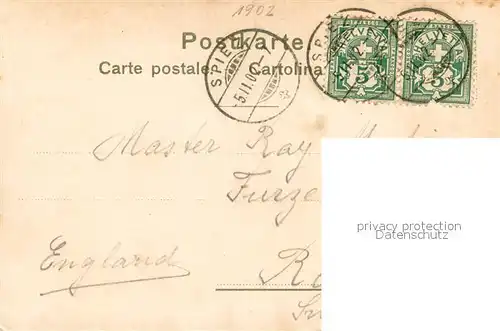 1902
Postkarte
Carte postale. Cartolina
SPIEZ
5.II.0
HELVETIA
5
HELVETIA
5
Master Ray
Furze
privacy protection
Datenschutz
England